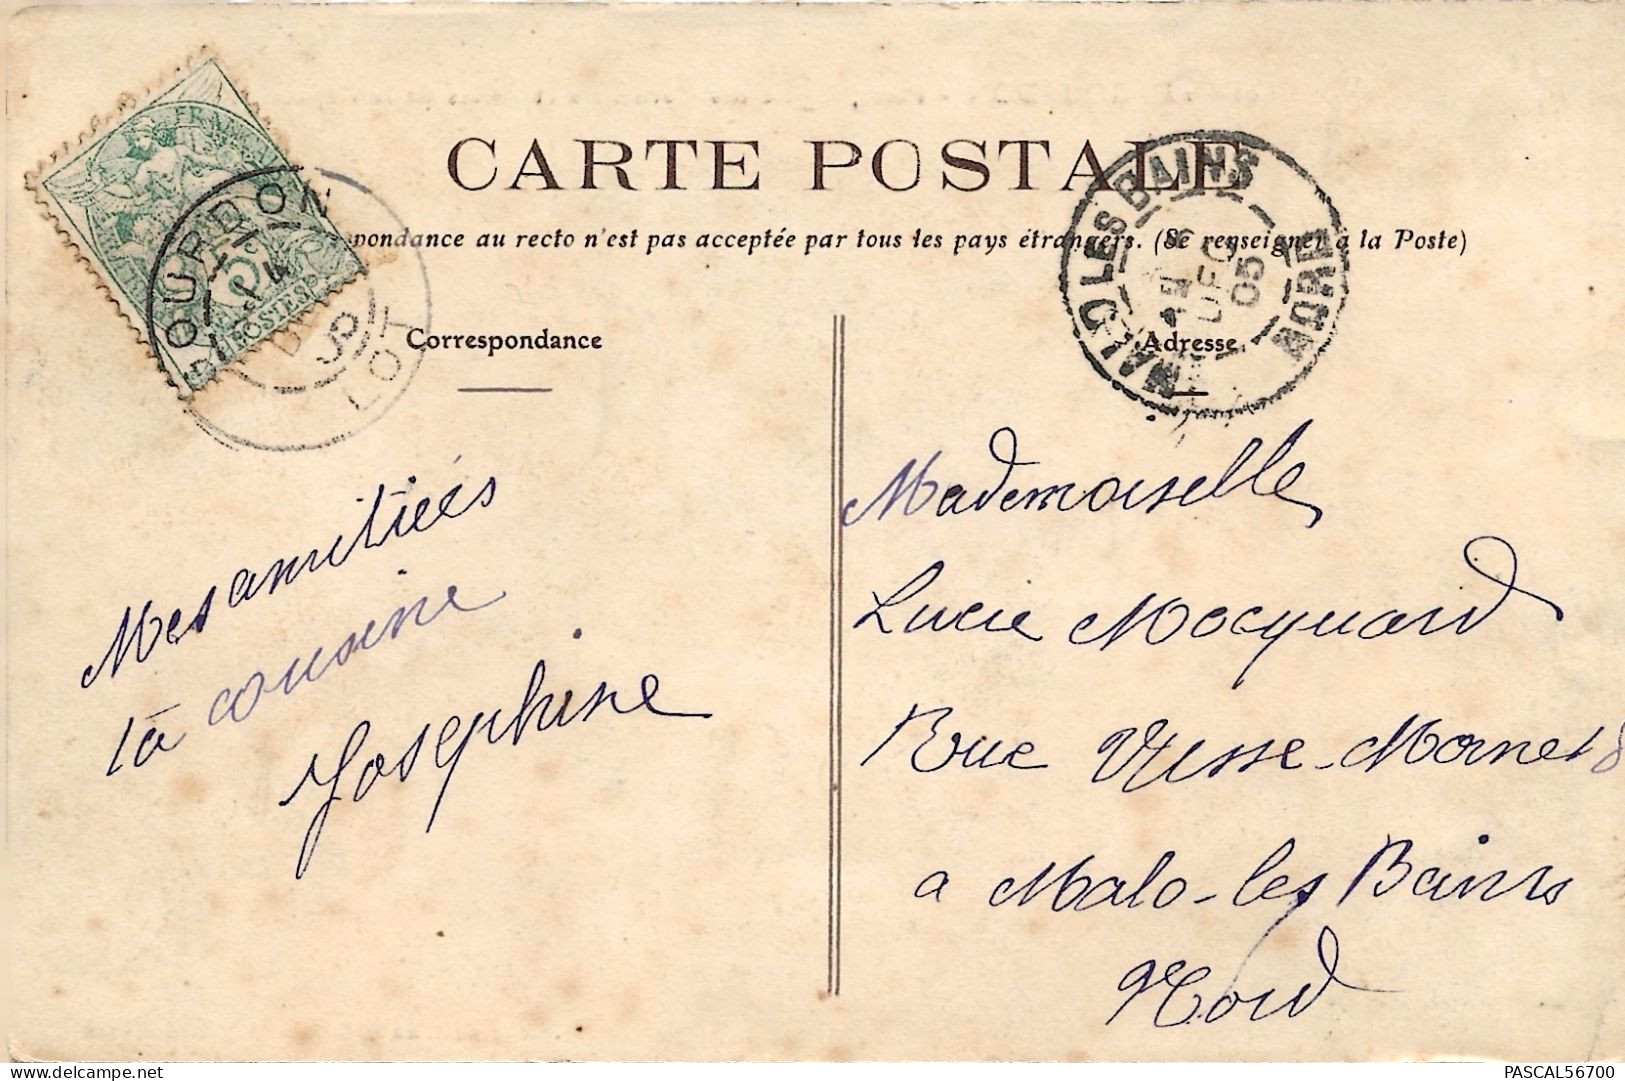 CARTE POSTALE
pondance au recto n'est pas acceptée par tous les pays étrangers. (Se renseigner à la Poste)
FRANÇAISE
POSTES
GOURDON
LOT
MALO LES BAINS
NORD
05
Correspondance
Adresse
Mes amitiées
ta cousine
Josephine
Mademoiselle
Lucie Mocquard
Rue
a Malo-les Bains
Nord
www.delcampe.net
PASCAL56700